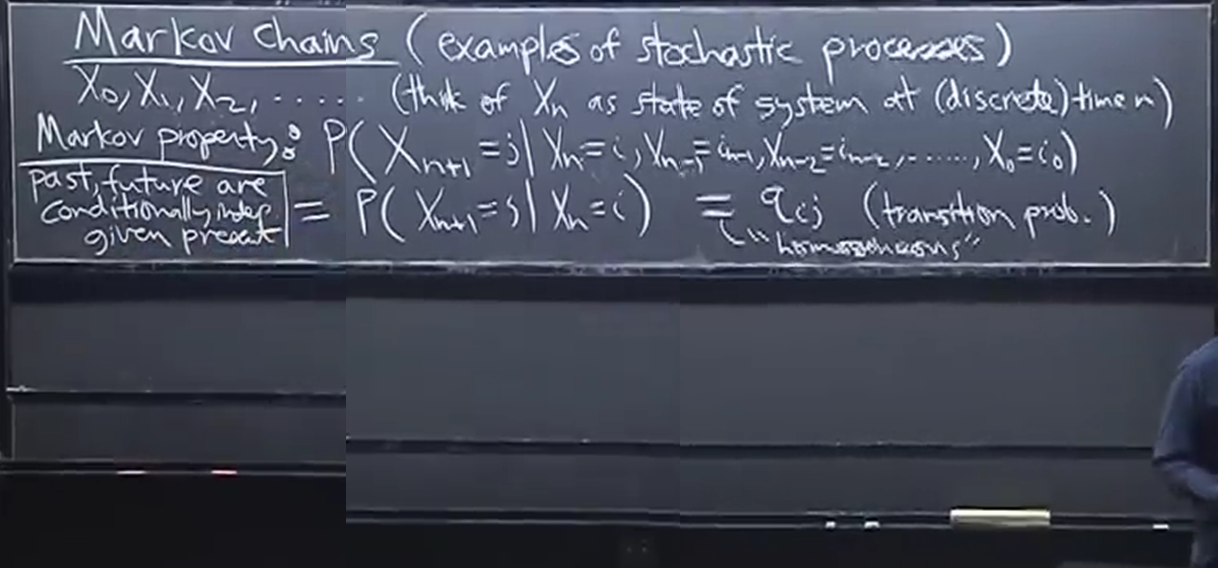 Markov Chains (examples of stochastic processes)
X₀, X₁, X₂, ..... (think of Xₙ as state of system at (discrete) time n)
Markov property: P(Xₙ₊₁ = j | Xₙ = i, Xₙ₋₁ = iₙ₋₁, Xₙ₋₂ = iₙ₋₂, ......, X₀ = i₀)
past, future are
conditionally indep
given present
= P(Xₙ₊₁ = j | Xₙ = i) = qᵢⱼ (transition prob.)
"homogeneous"